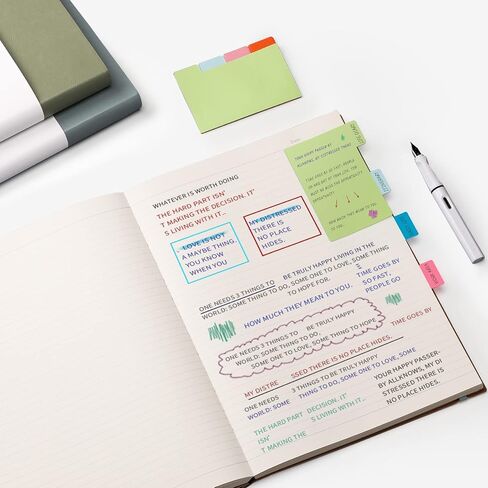 WHATEVER IS WORTH DOING
THE HARD PART ISN'
T MAKING THE DECISION. IT'
S LIVING WITH IT...
LOVE IS NOT
A MAYBE THING.
YOU KNOW
WHEN YOU
MY DISTRESSED
THERE IS
NO PLACE
HIDES.
ONE NEEDS 3 THINGS TO BE TRULY HAPPY LIVING IN THE
WORLD: SOME THING TO DO, SOME ONE TO LOVE, SOME THING
TO HOPE FOR.
TIME GOES BY
SO FAST,
PEOPLE GO
HOW MUCH THEY MEAN TO YOU.
ONE NEEDS 3 THINGS TO BE TRULY HAPPY
WORLD: SOME THING TO DO,
SOME ONE TO LOVE, SOME THING TO HOPE
TIME GOES BY
MY DISTRE SSED THERE IS NO PLACE HIDES.
ONE NEEDS 3 THINGS TO BE TRULY HAPPY
WORLD: SOME THING TO DO, SOME ONE TO LOVE, SOME
YOUR HAPPY PASSER-
BY ALLKNOWS, MY DI
STRESSED THERE IS
NO PLACE HIDES.
THE HARD PART DECISION. IT'
ISN' S LIVING WITH IT...
T MAKING THE